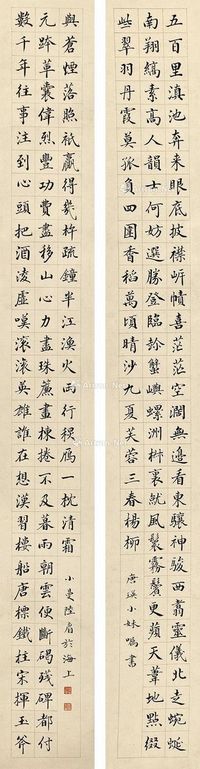 五百里滇池奔来眼底披襟岸幘喜茫茫空闊無邊看東驤神駿西翥靈儀北走蜿蜒
南翔縞素高人韻士何妨選勝登臨趁蟹嶼螺洲梳裹就風鬟霧鬢更蘋天葦地點綴
些翠羽丹霞莫孤負四圍香稻萬頃晴沙九夏芙蓉三春楊柳
唐瑛小妹囑書
數千年往事注到心頭把酒凌虛嘆滾滾英雄誰在想漢習樓船唐標鐵柱宋揮玉斧
元跨革囊偉烈豐功費盡移山心力盡珠簾畫棟捲不及暮雨朝雲便斷碣殘碑都付
與蒼煙落照祇贏得幾杵疏鐘半江漁火兩行秋雁一枕清霜
小曼陸眉於海上